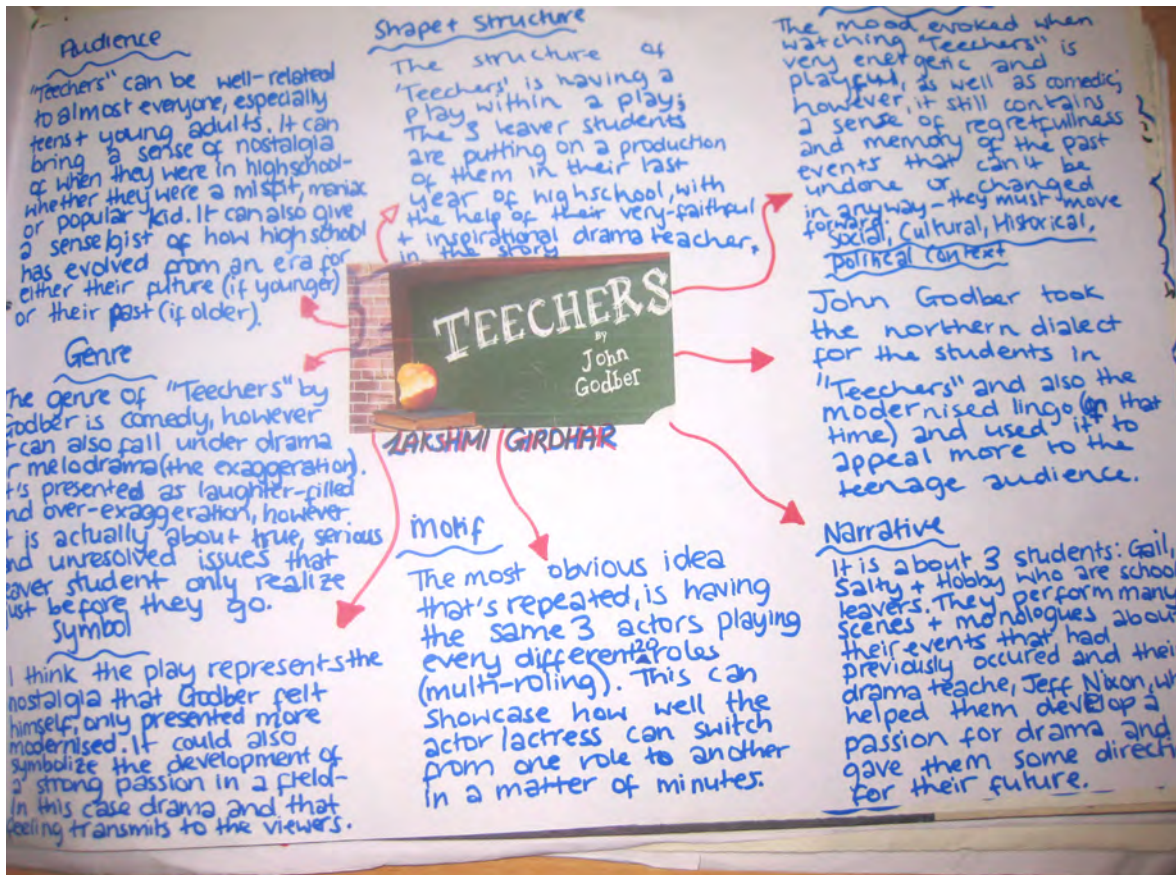 Audience
"Teechers" can be well-related
to almost everyone, especially
teens + young adults. It can
bring a sense of nostalgia
of when they were in highschool-
whether they were a misfit, maniac
or popular kid. It can also give
a sense/gist of how highschool
has evolved from an era for
either their future (if younger)
or their past (if older).
Genre
The genre of "Teechers" by
Godber is comedy, however
can also fall under drama
melodrama (the exaggeration).
It's presented as laughter-filled
and over-exaggeration, however
it is actually about true, serious
and unresolved issues that
leaver student only realize
just before they go.
Symbol
I think the play represents the
nostalgia that Godber felt
himself, only presented more
modernised. It could also
symbolize the development of
a strong passion in a field-
in this case drama and that
feeling transmits to the viewers.
Shape + Structure
The structure of
'Teechers' is having a
play within a play;
The 3 leaver students
are putting on a production
of them in their last
year of highschool, with
the help of their very-faithful
+ inspirational drama teacher,
in the story
TEECHERS
BY
John
Godber
LAKSHMI GIRDHAR
motif
The most obvious idea
that's repeated, is having
the same 3 actors playing
every different 20 roles
(multi-roling). This can
showcase how well the
actor/actress can switch
from one role to another
in a matter of minutes.
The mood evoked when
watching "Teechers" is
very energetic and
playful, as well as comedic;
however, it still contains
a sense of regretfullness
and memory of the past
events that can't be
undone or changed
in anyway - they must move
forward.
Social, Cultural, Historical,
Political Context
John Godber took
the northern dialect
for the students in
"Teechers" and also the
modernised lingo (on that
time) and used it to
appeal more to the
teenage audience.
Narrative
It is about 3 students: Gail,
Salty + Hobby who are school
leavers. They perform many
scenes + monologues about
their events that had
previously occured and their
drama teache, Jeff Nixon, wh
helped them develop a
passion for drama and
gave them some direct
for their future.